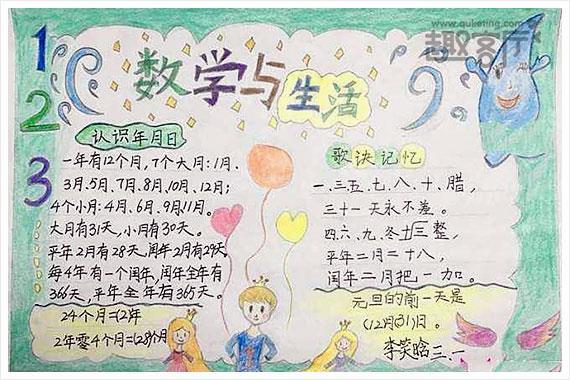 www.quketing.com
趣客厅
1
2
3
数学与生活
认识年月日
一年有12个月,7个大月:1月.
3月.5月、7月、8月、10月、12月;
4个小月:4月、6月、9月11月。
大月有31天,小月有30天。
平年2月有28天,闰年2月有29天
每4年有一个闰年,闰年全年有
366天,平年全年有365天。
24个月=(2)年
2年零4个月=(28)个月
歌诀记忆
一、三五、七、八、十、腊,
三十一天永不差。
四、六、九、冬三十整,
平年二月二十八,
闰年二月把一加。
元旦的前一天是
(12月31)日。
李笑晗三.一